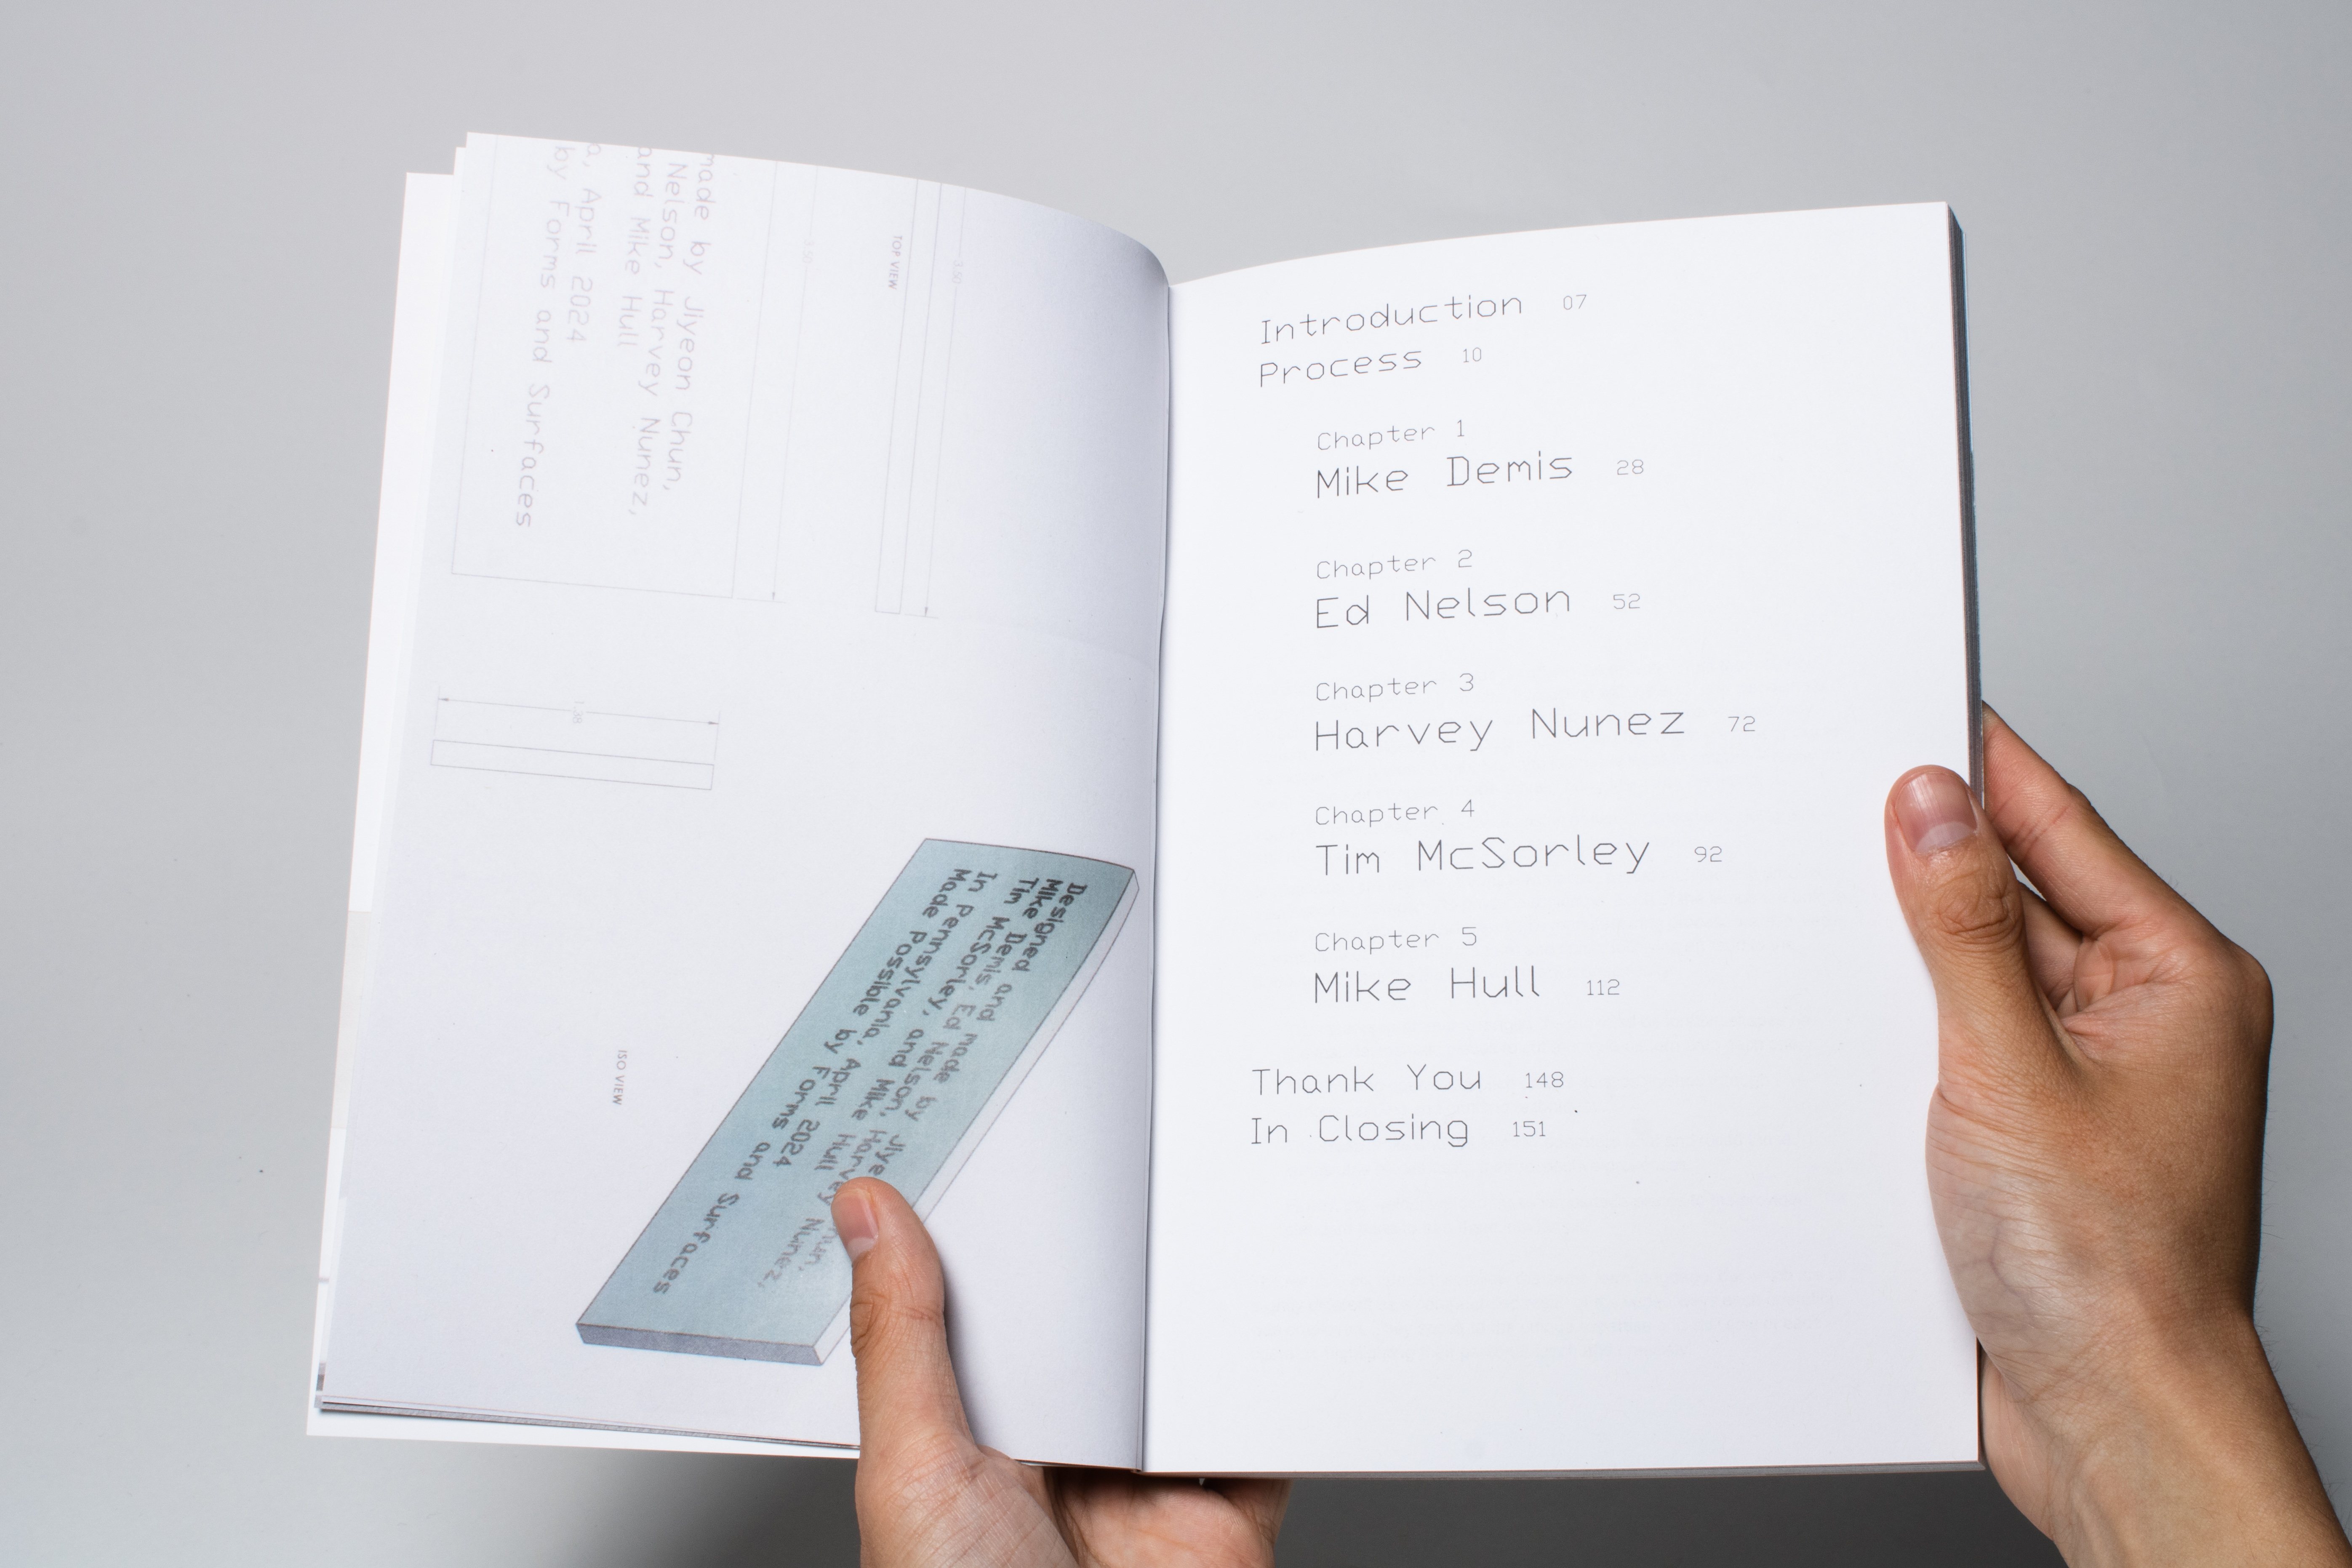 made by Jiyeon Chun,
Nelson, Harvey Nunez,
and Mike Hull
a, April 2024
by Forms and Surfaces
3.50
TOP VIEW
3.50
1.38
ISO VIEW
Designed and made by Jiye hun,
Mike Demis, Ed Nelson, Harvey Nunez,
Tim McSorley, and Mike Hull
In Pennsylvania, April 2024
Made Possible by Forms and Surfaces
Introduction 07
Process 10
Chapter 1
Mike Demis 28
Chapter 2
Ed Nelson 52
Chapter 3
Harvey Nunez 72
Chapter 4
Tim McSorley 92
Chapter 5
Mike Hull 112
Thank You 148
In Closing 151